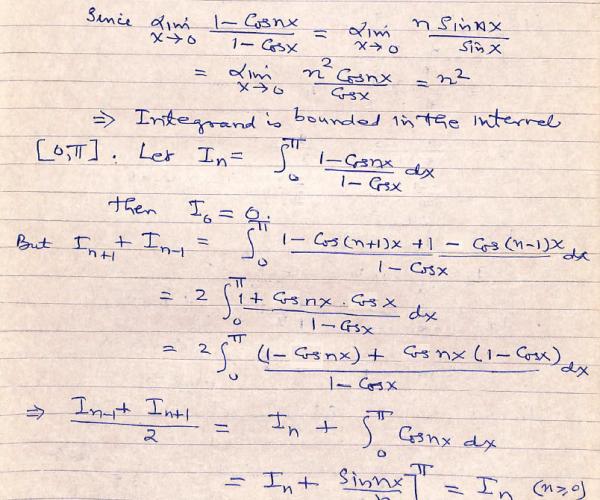 Since lim x→0 (1 - Cosnx)/(1 - Cosx) = lim x→0 (n Sinnx)/(Sinx)
= lim x→0 (n² Cosnx)/(Cosx) = n²
⇒ Integrand is bounded in the interval
[0,π]. Let Iₙ = ∫₀^π (1-Cosnx)/(1-Cosx) dx
then I₀ = 0.
But Iₙ₊₁ + Iₙ₋₁ = ∫₀^π (1 - Cos(n+1)x + 1 - Cos(n-1)x)/(1 - Cosx) dx
= 2 ∫₀^π (1 + Cosnx . Cosx)/(1 - Cosx) dx
= 2 ∫₀^π ((1 - Cosnx) + Cosnx (1 - Cosx))/(1 - Cosx) dx
⇒ (Iₙ₋₁ + Iₙ₊₁)/2 = Iₙ + ∫₀^π Cosnx dx
= Iₙ + Sinnx/n ]^π = Iₙ (n>0)